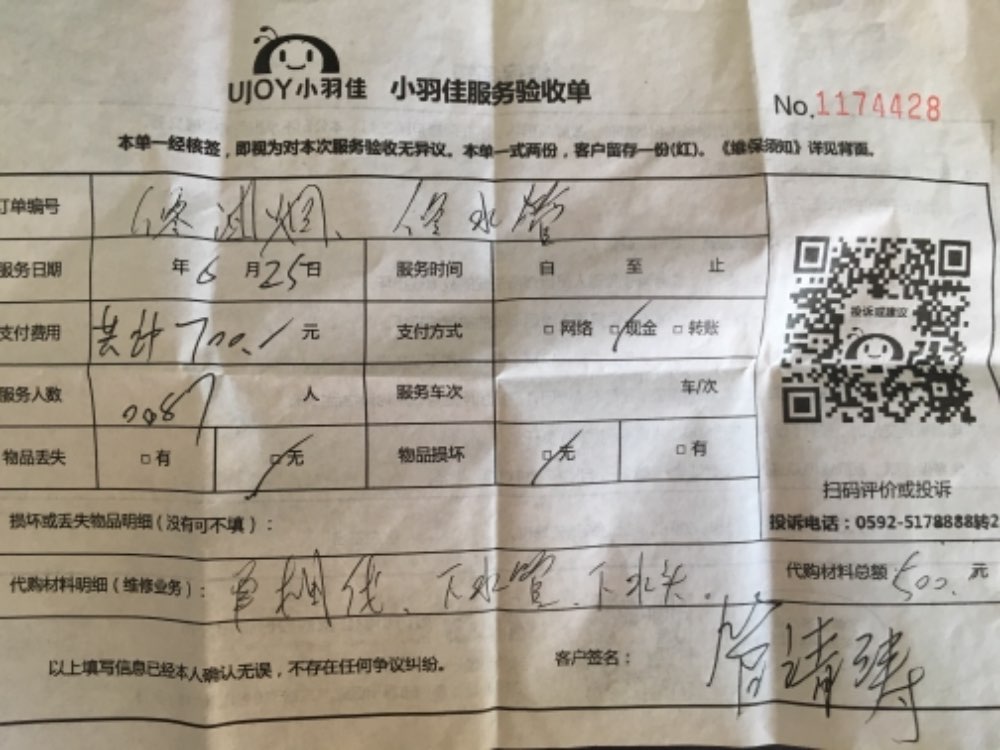 UJOY小羽佳 小羽佳服务验收单
No.1174428
本单一经核签，即视为对本次服务验收无异议。本单一式两份，客户留存一份(红)。《维保须知》详见背面。
订单编号 修 修水管
服务日期 年6月25日 服务时间 自 至 止
投诉或建议
支付费用 共计700.元 支付方式 □网络 □现金 □转账
服务人数 0087 人 服务车次 车/次
物品丢失 □有 □无 物品损坏 □无 □有
扫码评价或投诉
损坏或丢失物品明细(没有可不填)： 投诉电话：0592-5178888转2
代购材料明细(维修业务)： 下水管、下水头。 代购材料总额 500.元
以上填写信息已经本人确认无误，不存在任何争议纠纷。 客户签名：